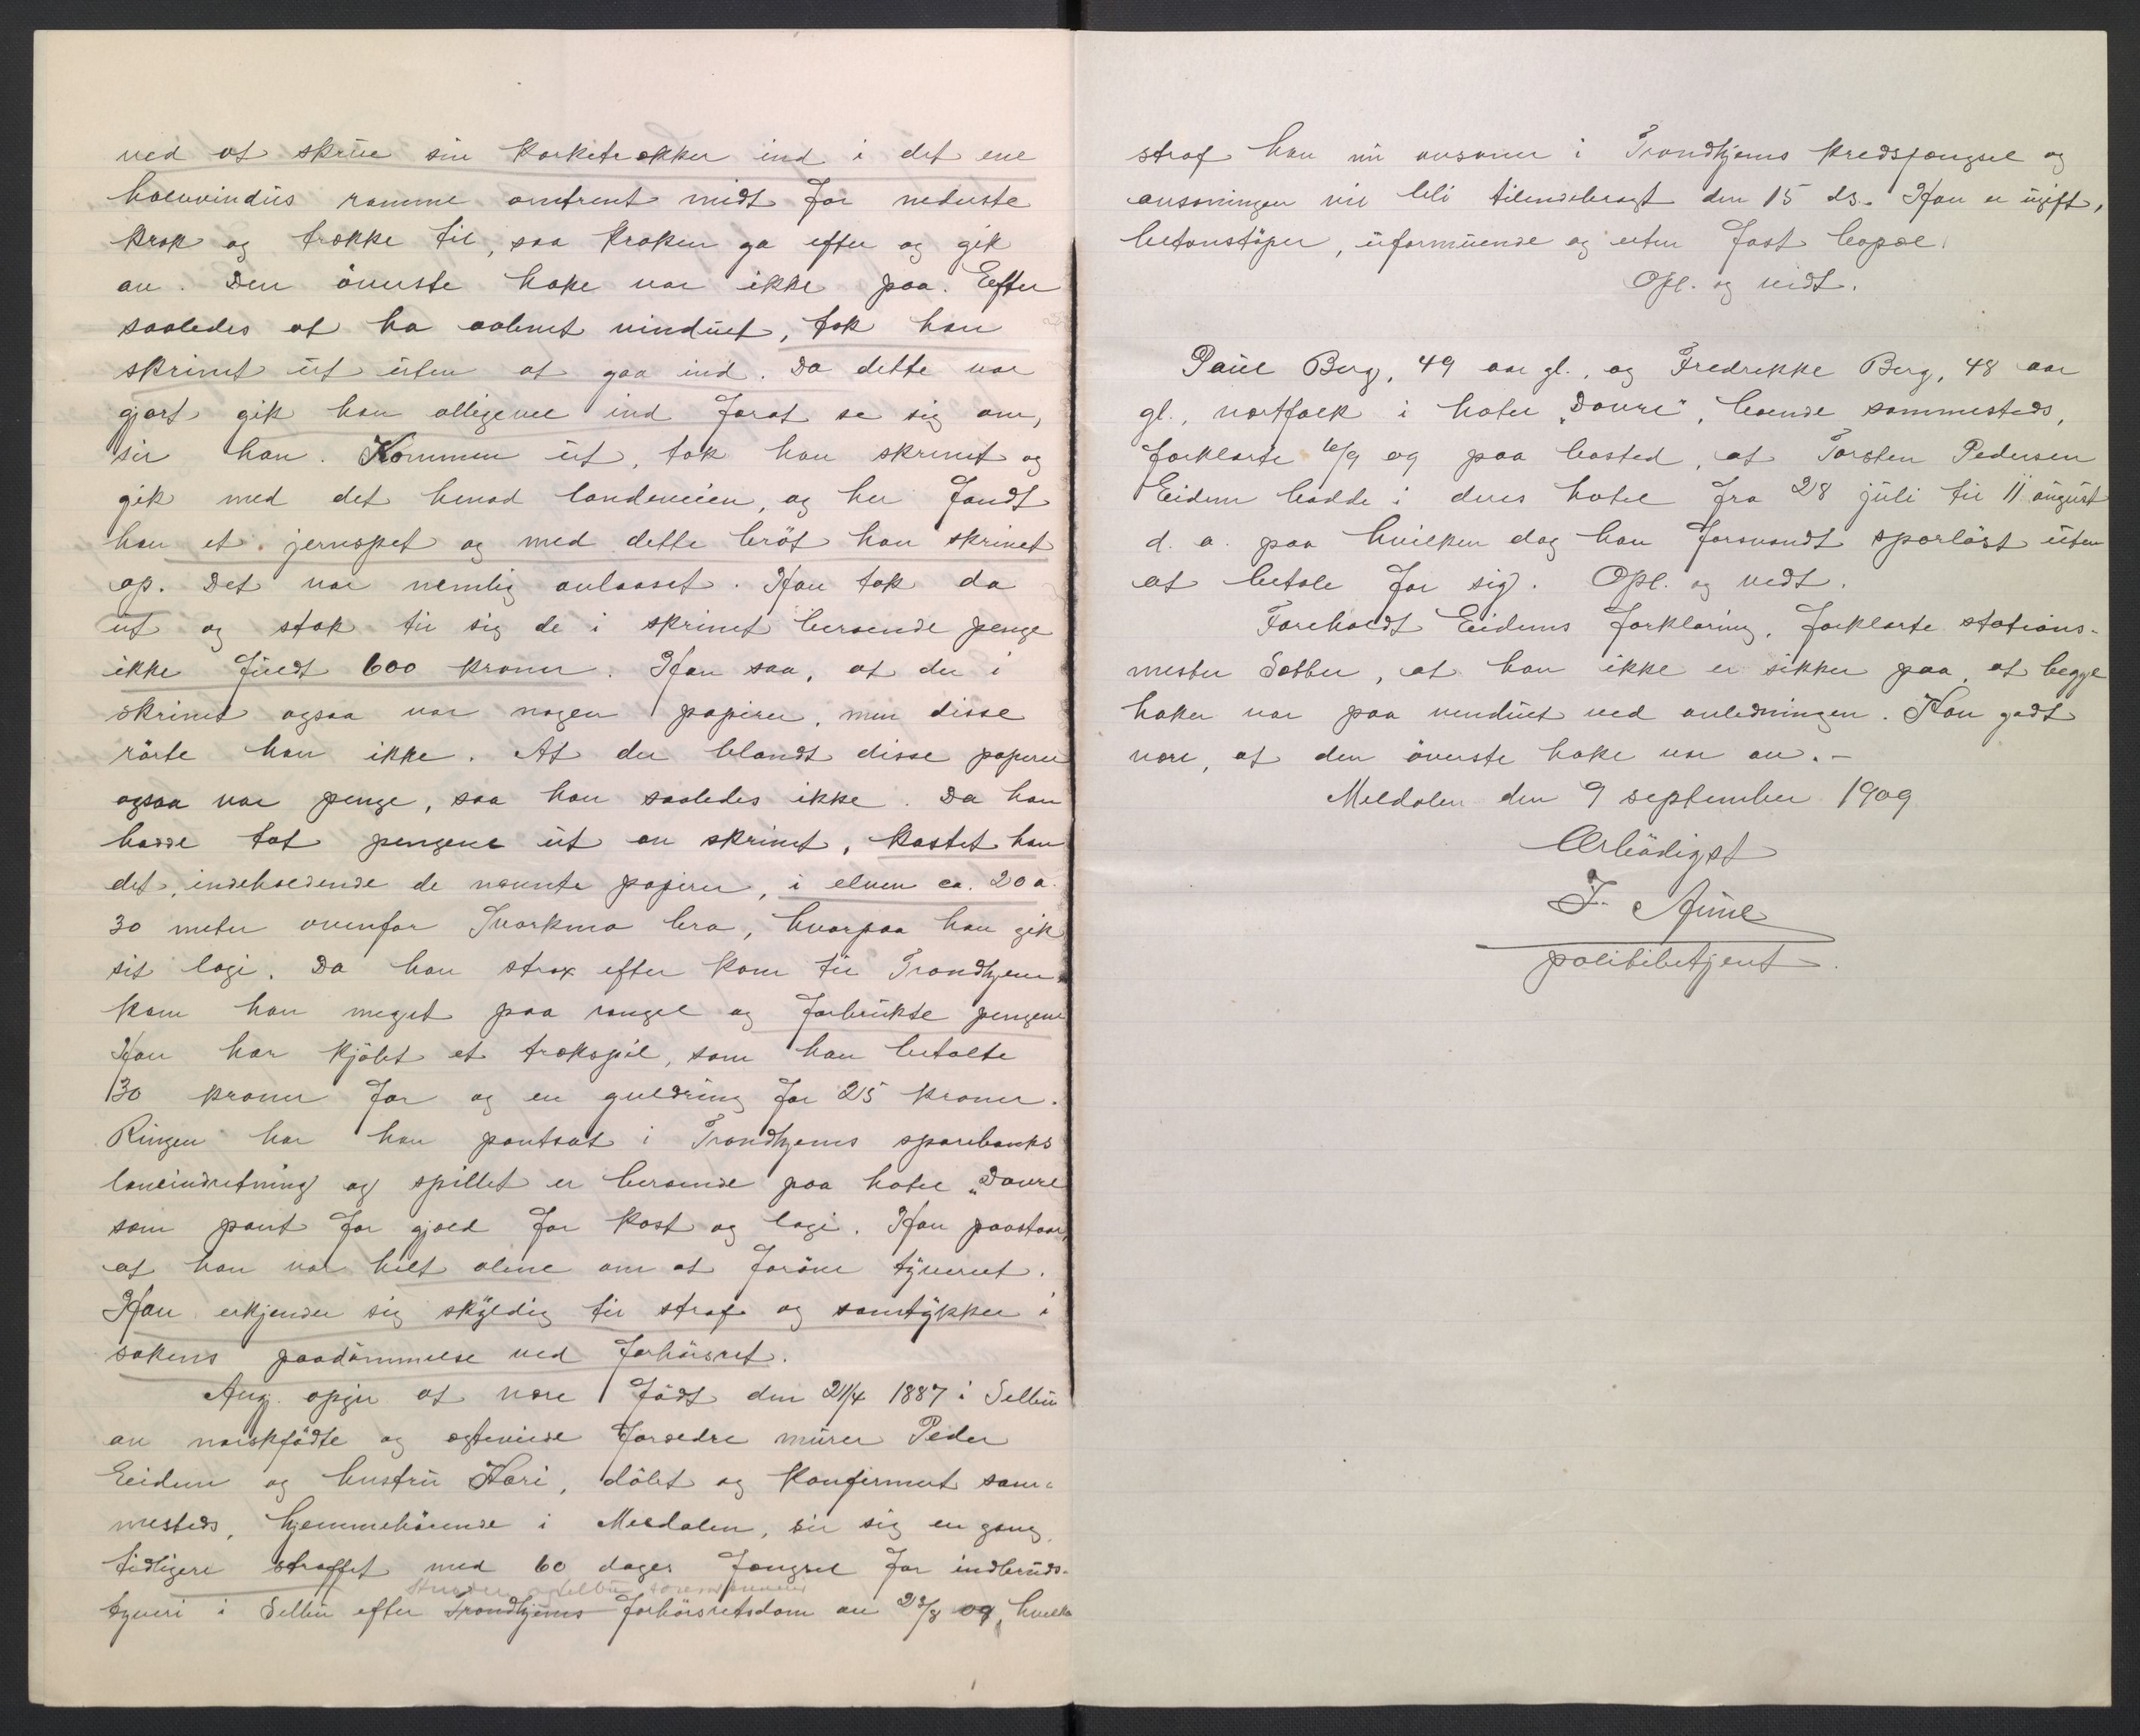 ved at skrue sin korketrækker ind i det ene
halvvindus ramme omtrent midt for nederste
krok og trække til, saa kroken ga efter og gik
av. Den øverste hake var ikke paa. Efter
saaledes at ha aabnet vinduet, tok han
skrinet ut uten at gaa ind. Da dette var
gjort gik han alligevel ind forat se sig om,
sier han. Kommen ut, tok han skrinet og
gik med det henad landeveien, og her fandt
han et jernspet og med dette brøt han skrinet
op. Det var nemlig avlaaset. Han tok da
ut og stak til sig de i skrinet beroende penge
ikke fuldt 600 kroner. Han saa, at der i
skrinet ogsaa var nogen papirer, men disse
rørte han ikke. At der blandt disse papirer
ogsaa var penge, saa han saaledes ikke. Da han
hadde tat pengene ut av skrinet, kastet han
det, indeholdende de nævnte papirer, i elven ca. 20 a
30 meter ovenfor Svorkmo bro, hvorpaa han gik
sit logi. Da han strax efter kom til Trondhjem
kom han meget paa rangel og forbrukte pengene
Han har kjøbt et trækspil, som han betalte
30 kroner for og en guldring for 25 kroner.
Ringen har han pantsat i Trondhjems sparebanks
laaneindretning og spillet er beroende paa hotel „Dovre
som pant for gjæld for kost og logi. Han paastaar,
at han var helt alene om at forøve tyveriet.
Han erkjender sig skyldig til straf og samtykker i
sakens paadømmelse ved forhørsret.
Ang. opgir at være født den 21/4 1887 i Selbu
av norskfødte og ægteviede forældre murer Peder
Eidem og hustru Kari, døbt og konfirmert sam-
mesteds, hjemmehørende i Meldalen, sier sig en gang
tidligere straffet med 60 dages fængsel for indbruds-
tyveri i Selbu efter Trondhjems forhørsretsdom av 23/8 09, hvilken
straf han nu avsoner i Trondhjems kredsfængsel og
avsoningen vil bli tilendebragt den 15 ds. Han er ugift,
betonstøper, uformuende og uten fast bopæl.
Opl. og vedt.
Paul Berg, 49 aar gl., og Fredrikke Berg, 48 aar
gl., vertfolk i hotel „Dovre", boende sammesteds,
forklarte 6/9 09 paa bosted, at Torsten Pedersen
Eidem bodde i deres hotel fra 28 juli til 11 august
d. a. paa hvilken dag han forsvandt sporløst uten
at betale for sig. Opl. og vedt.
Foreholdt Eidems forklaring, forklarte stations-
mester Sæther, at han ikke er sikker paa, at begge
haker var paa vinduet ved anledningen. Kan godt
være, at den øverste hake var av.-
Meldalen den 9 september 1909
Ærbødigst
J. Aune
politibetjent.